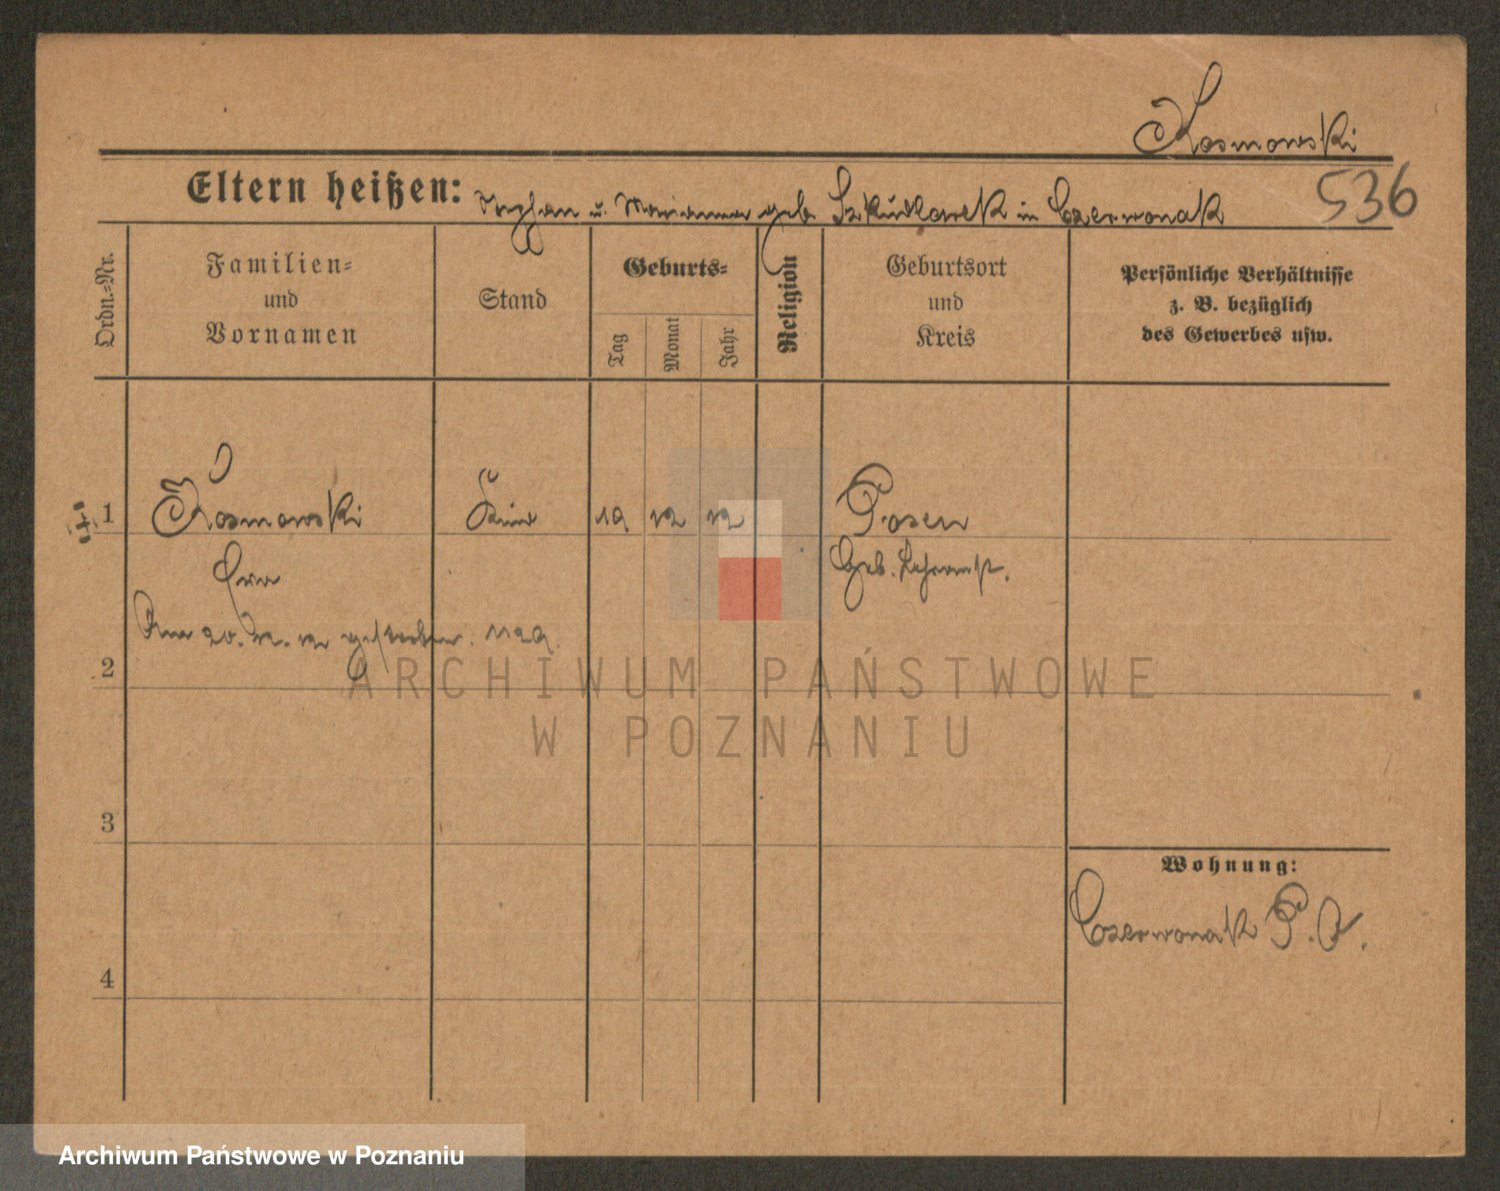 Kosmowski
Eltern heißen: Stephan u. Marianna geb. Szkudlarek in Czerwonak 536
Ordn.=Nr.
Familien=
und
Vornamen
Stand
Geburts=
Tag
Monat
Jahr
Religion
Geburtsort
und
Kreis
Persönliche Verhältnisse
z. B. bezüglich
des Gewerbes usw.
1 Kosmowski Kind 19 12 12 Posen
Geb.
Am 20. 12. 12 gestorben. 1129.
2
ARCHIWUM PAŃSTWOWE
W POZNANIU
3
Wohnung:
Czerwonak P. O.
4
Archiwum Państwowe w Poznaniu